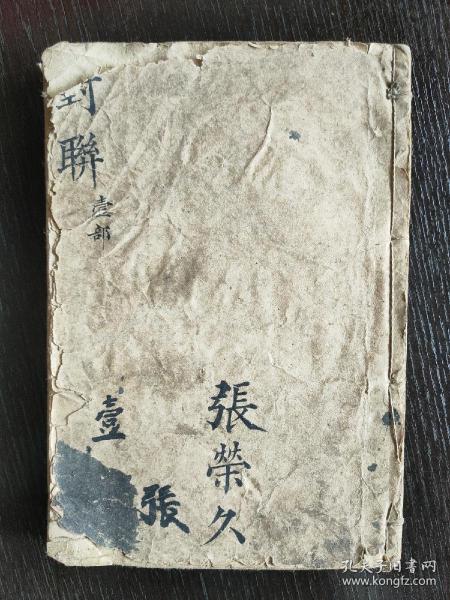 對聯
壹部
張榮久
壹
張
孔夫子旧书网
www.kongfz.com